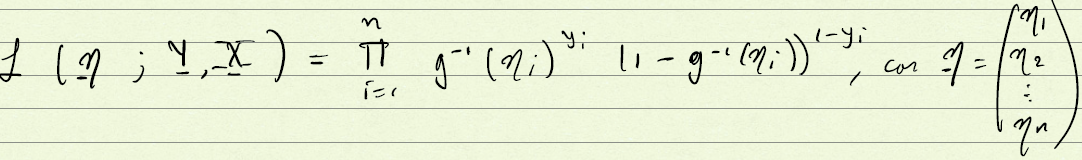 L (η ; Y, X) = ∏_{i=1}^{n} g⁻¹(ηᵢ)^{yᵢ} (1 - g⁻¹(ηᵢ))^{1-yᵢ}, con η = (η₁ η₂ ⋮ ηₙ)